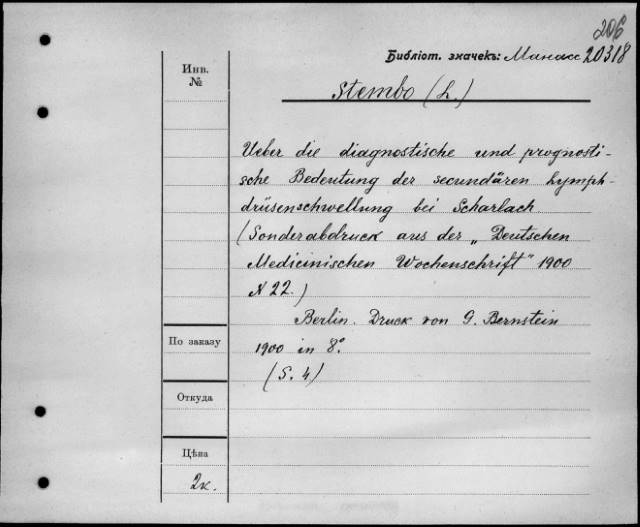 206
Библіот. значекъ: Манасс 20318
Инв.
№
Stembo (L.)
Ueber die diagnostische und prognosti-
sche Bedeutung der secundären Lymph-
drüsenschwellung bei Scharlach
(Sonderabdruck aus der „Deutschen
Medicinischen Wochenschrift" 1900
N 22.)
Berlin. Druck von G. Bernstein
По заказу
1900 in 8°.
(S. 4)
Откуда
Цѣна
2к.